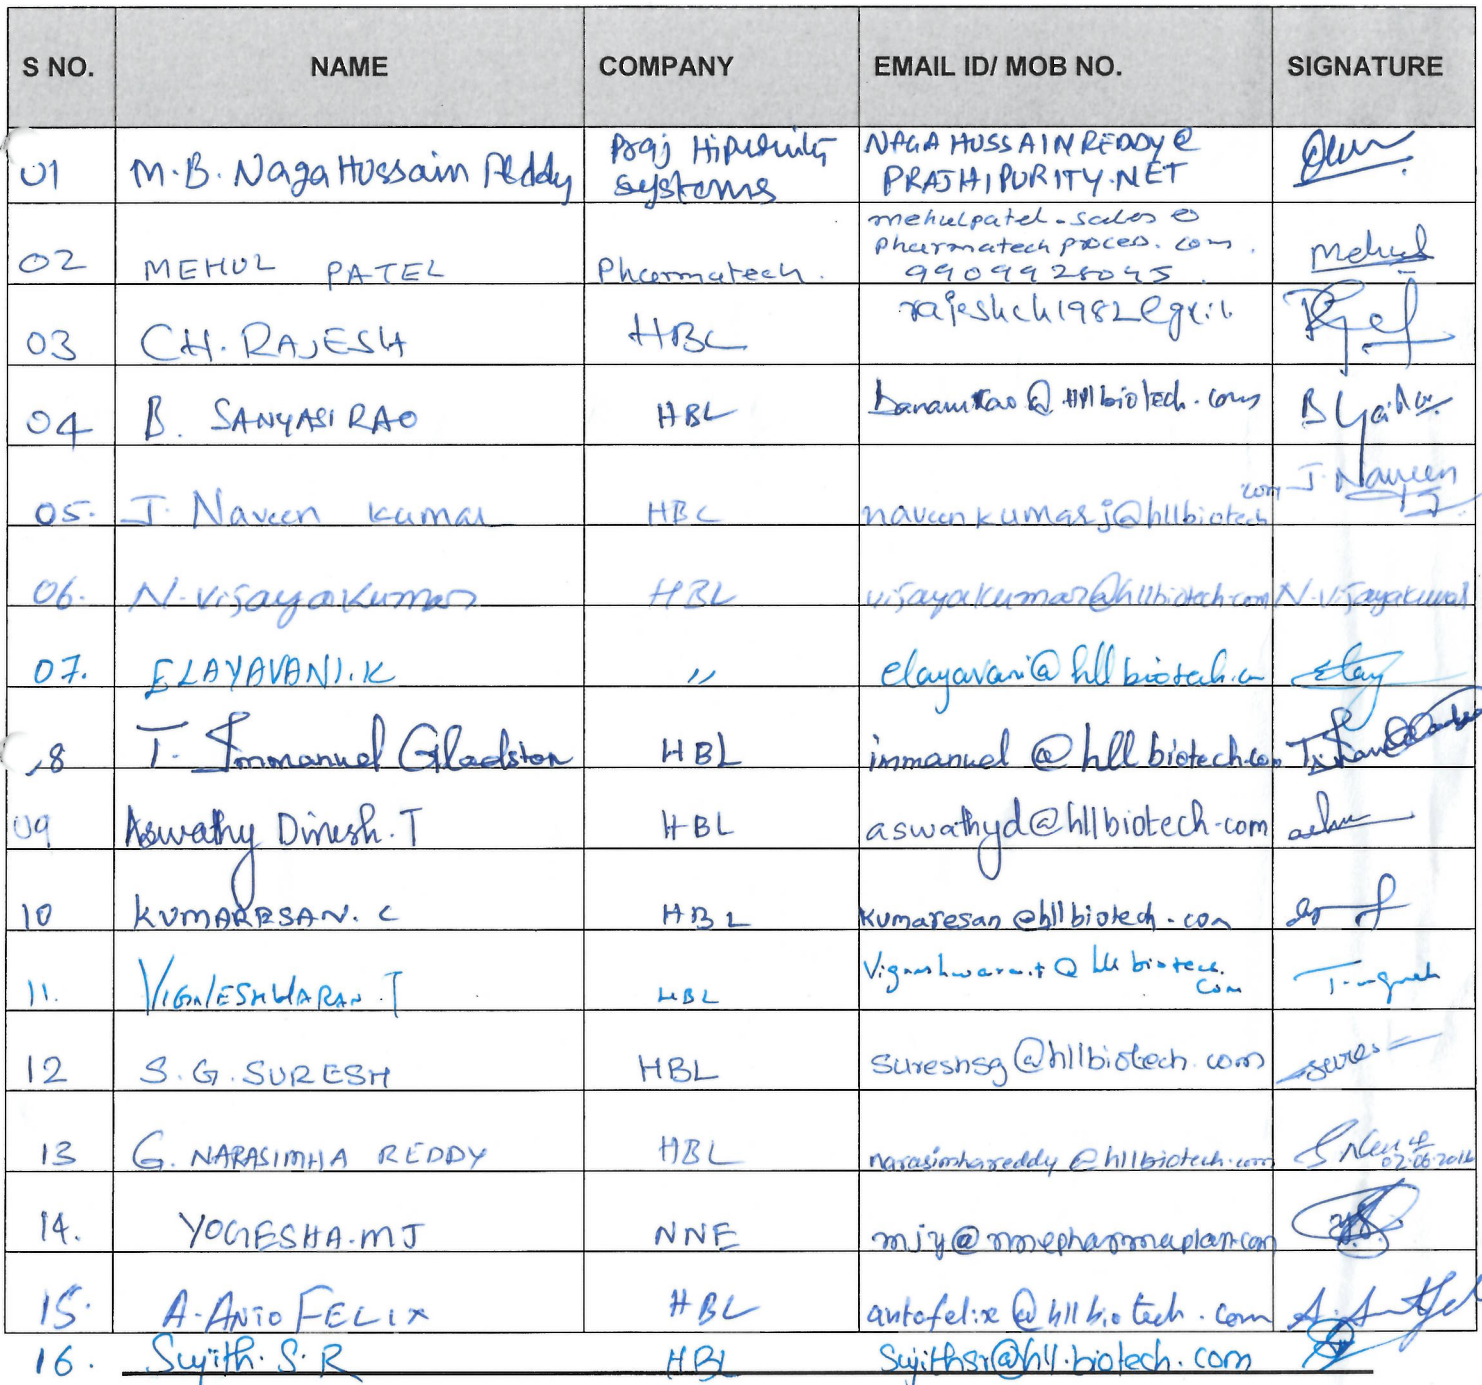 S NO. NAME COMPANY EMAIL ID/ MOB NO. SIGNATURE
01 M.B. Naga Hussain Reddy Praj Hipurity systems NAGAHUSSAINREDDY@ PRAJHIPURITY.NET
02 MEHUL PATEL Pharmatech. mehulpatel-sales@ pharmatechproces.com. 9909928045 Mehul
03 CH. RAJESH HBL
04 B. SANYASI RAO HBL @ Hll biotech.com
05. J. Naveen Kumar HBL naveenkumarj@hllbiotech com J. Naveen
06. N. Vijayakumar HBL vijayakumar@hllbiotech.com N. Vijayakumar
07. ELAYAVANI.K 〃 elayavani@hllbiotech. Elay
8 T. Immanuel Gladston HBL immanuel@hllbiotech.com
09 Aswathy Dinesh.T HBL aswathyd@hllbiotech.com
10 KUMARESAN. C HBL kumaresan@hllbiotech.com
11. VIGNESHWARAN.T HBL Vigneshwaran.t@hllbiotech. com
12 S.G. SURESH HBL sureshsg@hllbiotech.com
13 G. NARASIMHA REDDY HBL narasimhareddy@hllbiotech.com 02.06.2016
14. YOGESHA.MJ NNE mjy@nnepharmaplan.com
15. A. ANTO FELIX HBL antofelix@hllbiotech.com
16. Sujith. S. R HBL Sujithsr@hll.biotech.com